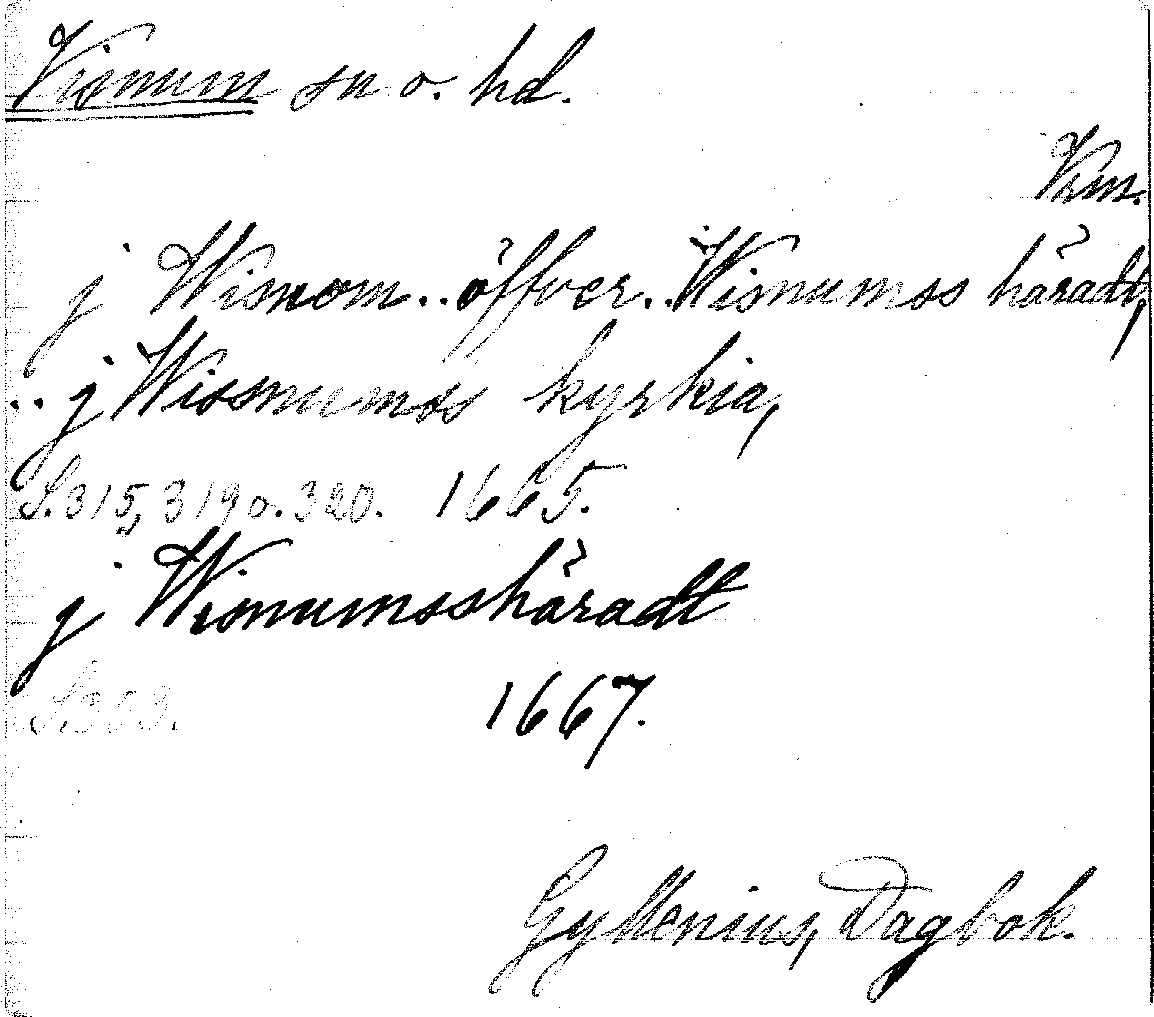 Visnum sn o. hd.
Vrm.
j Wisnom .. öffver .. Wisnumss häradt,
.. j Wissnumss kyrkia,
S. 315, 319 o. 320. 1665.
j Wisnumsshäradt
S. 353. 1667.
Gyllenius, Dagbok.